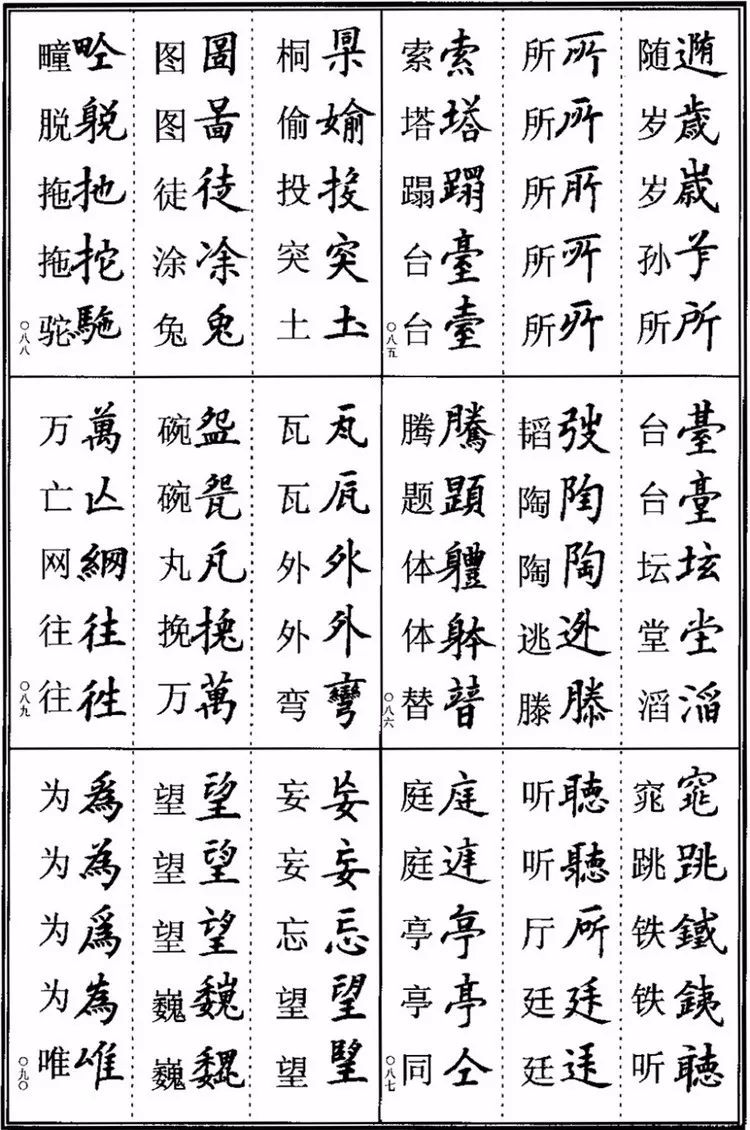 随 岁歳 岁 孙 所所
所 所 所 所 所
索索 塔塔 蹋蹋 台臺 台臺
〇八五
台臺 台臺 坛坛 堂堂 滔滔
韬弢 陶陶 陶陶 逃迯 滕滕
腾騰 题題 体軆 体躰 替朁
〇八六
窕窕 跳跳 铁鐵 铁銕 听聽
听聽 听聽 厅所 廷廷 廷
庭庭 庭 亭亭 亭亭 同仝
〇八七
桐 偷媮 投投 突突 土圡
图圖 图啚 徒徒 涂凃 兔兔
疃 脱 拖扡 拖拕 驼駞
〇八八
瓦瓦 瓦瓦 外外 外外 弯彎
碗盌 碗 丸 挽挽 万萬
万萬 亡亾 网網 往往 往徃
〇八九
妄妄 妄妄 忘忘 望望 望朢
望望 望望 望望 巍巍 巍巍
为為 为為 为爲 为為 唯唯
〇九〇